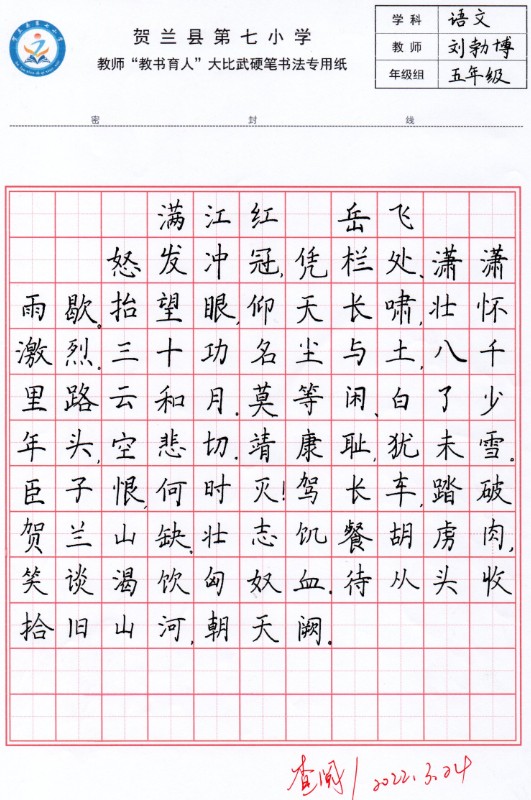 贺兰县第七小学
教师“教书育人”大比武硬笔书法专用纸
学科 语文
教师 刘勃博
年级组 五年级
密 封 线
满江红 岳飞
怒发冲冠,凭栏处、潇潇
雨歇。抬望眼,仰天长啸,壮怀
激烈。三十功名尘与土,八千
里路云和月。莫等闲、白了少
年头,空悲切。靖康耻,犹未雪。
臣子恨,何时灭!驾长车,踏破
贺兰山缺。壮志饥餐胡虏肉,
笑谈渴饮匈奴血。待从头收
拾旧山河,朝天阙。
查阅/2022.3.24